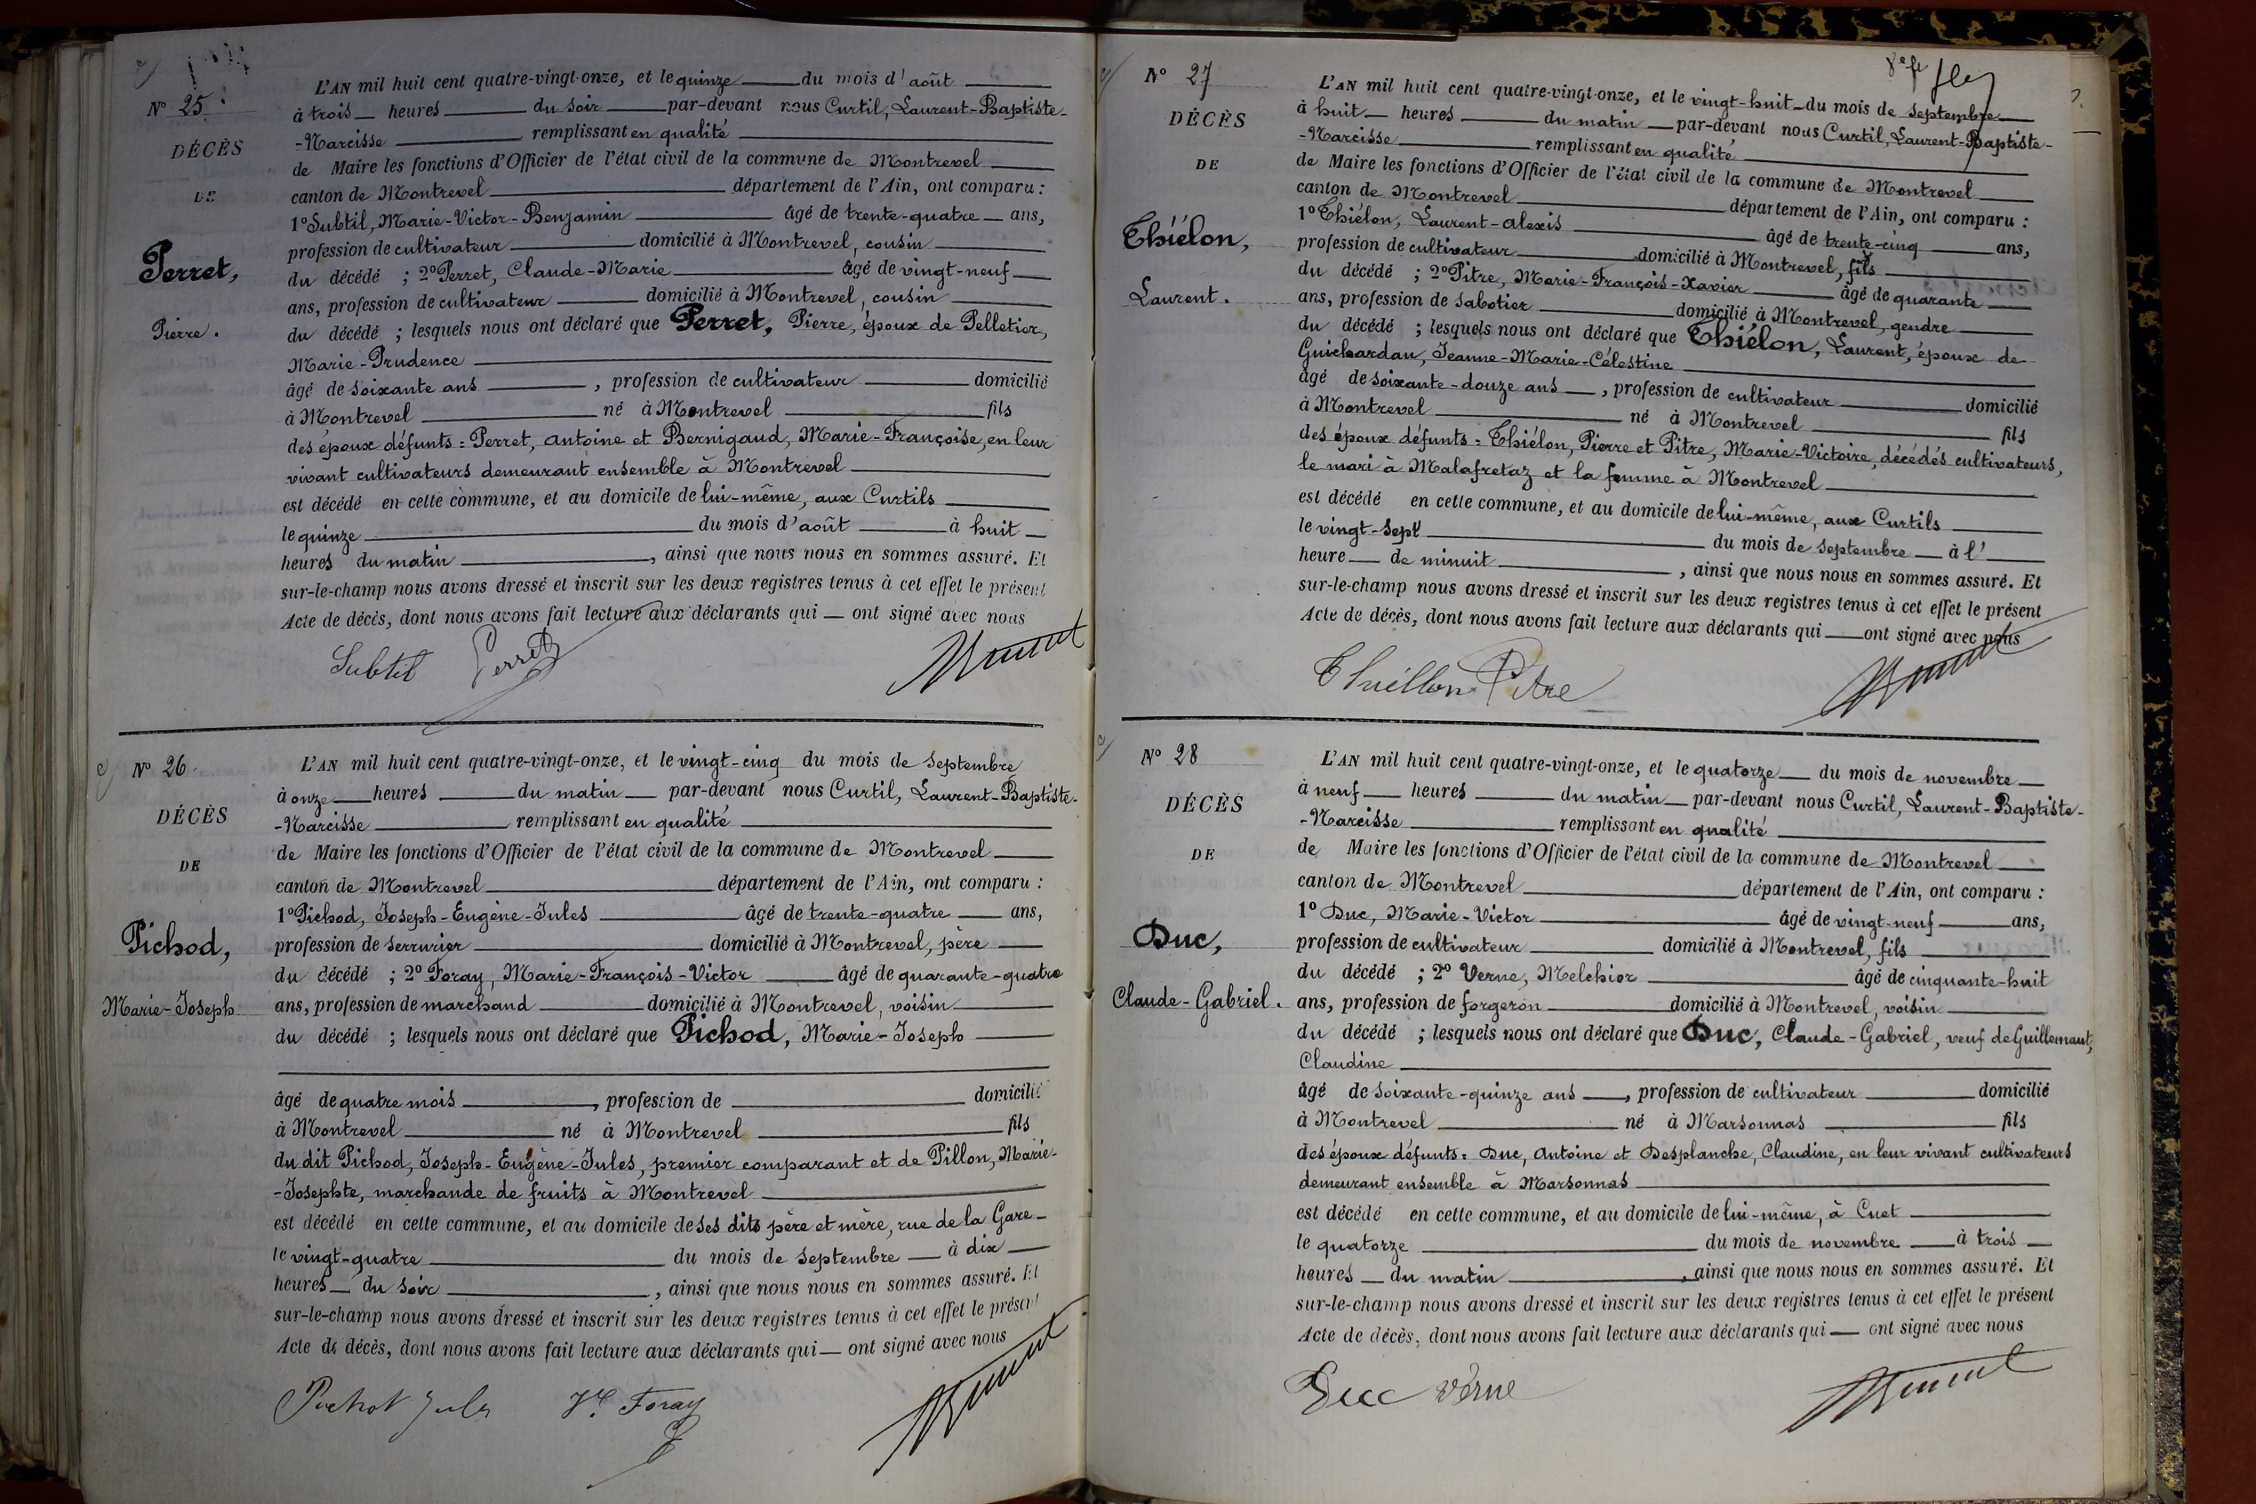 N° 25
DÉCÈS
DE
Perret,
Pierre.
L'AN mil huit cent quatre-vingt-onze, et le quinze du mois d'août
à trois heures du soir par-devant nous Curtil, Laurent-Baptiste-
-Narcisse remplissant en qualité
de Maire les fonctions d'Officier de l'état civil de la commune de Montrevel
canton de Montrevel département de l'Ain, ont comparu :
1° Subtil, Marie-Victor-Benjamin âgé de trente-quatre ans,
profession de cultivateur domicilié à Montrevel, cousin
du décédé ; 2° Perret, Claude-Marie âgé de vingt-neuf
ans, profession de cultivateur domicilié à Montrevel, cousin
du décédé ; lesquels nous ont déclaré que Perret, Pierre, époux de Pelletier,
Marie-Prudence
âgé de soixante ans , profession de cultivateur domicilié
à Montrevel né à Montrevel fils
des époux défunts : Perret, Antoine et Bernigaud, Marie-Françoise, en leur
vivant cultivateurs demeurant ensemble à Montrevel
est décédé en cette commune, et au domicile de lui-même, aux Curtils
le quinze du mois d'août à huit
heures du matin , ainsi que nous nous en sommes assuré. Et
sur-le-champ nous avons dressé et inscrit sur les deux registres tenus à cet effet le présent
Acte de décès, dont nous avons fait lecture aux déclarants qui — ont signé avec nous
Subtil Perret
N° 26
DÉCÈS
DE
Pichod,
Marie-Joseph
L'AN mil huit cent quatre-vingt-onze, et le vingt-cinq du mois de septembre
à onze heures du matin par-devant nous Curtil, Laurent-Baptiste-
-Narcisse remplissant en qualité
de Maire les fonctions d'Officier de l'état civil de la commune de Montrevel
canton de Montrevel département de l'Ain, ont comparu :
1° Pichod, Joseph-Eugène-Jules âgé de trente-quatre ans,
profession de serrurier domicilié à Montrevel, père
du décédé ; 2° Foray, Marie-François-Victor âgé de quarante-quatre
ans, profession de marchand domicilié à Montrevel, voisin
du décédé ; lesquels nous ont déclaré que Pichod, Marie-Joseph
âgé de quatre mois , profession de domicilié
à Montrevel né à Montrevel fils
du dit Pichod, Joseph-Eugène-Jules, premier comparant et de Pillon, Marie-
-Josephte, marchande de fruits à Montrevel
est décédé en cette commune, et au domicile de ses dits père et mère, rue de la Gare
le vingt-quatre du mois de septembre à dix
heures du soir , ainsi que nous nous en sommes assuré. Et
sur-le-champ nous avons dressé et inscrit sur les deux registres tenus à cet effet le présent
Acte de décès, dont nous avons fait lecture aux déclarants qui — ont signé avec nous
Pichot Jules Vr Foray
N° 27
DÉCÈS
DE
Thiélon,
Laurent.
L'AN mil huit cent quatre-vingt-onze, et le vingt-huit du mois de septembre
à huit heures du matin par-devant nous Curtil, Laurent-Baptiste-
-Narcisse remplissant en qualité
de Maire les fonctions d'Officier de l'état civil de la commune de Montrevel
canton de Montrevel département de l'Ain, ont comparu :
1° Thiélon, Laurent-Alexis âgé de trente-cinq ans,
profession de cultivateur domicilié à Montrevel, fils
du décédé ; 2° Pitre, Marie-François-Xavier âgé de quarante
ans, profession de sabotier domicilié à Montrevel, gendre
du décédé ; lesquels nous ont déclaré que Thiélon, Laurent, époux de
Guichardan, Jeanne-Marie-Célestine
âgé de soixante-douze ans , profession de cultivateur domicilié
à Montrevel né à Montrevel fils
des époux défunts : Thiélon, Pierre et Pitre, Marie-Victoire, décédés cultivateurs,
le mari à Malafretaz et la femme à Montrevel
est décédé en cette commune, et au domicile de lui-même, aux Curtils
le vingt-sept du mois de septembre à l'
heure de minuit , ainsi que nous nous en sommes assuré. Et
sur-le-champ nous avons dressé et inscrit sur les deux registres tenus à cet effet le présent
Acte de décès, dont nous avons fait lecture aux déclarants qui — ont signé avec nous
Thiellon Pitre
N° 28
DÉCÈS
DE
Duc,
Claude-Gabriel.
L'AN mil huit cent quatre-vingt-onze, et le quatorze du mois de novembre
à neuf heures du matin par-devant nous Curtil, Laurent-Baptiste-
-Narcisse remplissant en qualité
de Maire les fonctions d'Officier de l'état civil de la commune de Montrevel
canton de Montrevel département de l'Ain, ont comparu :
1° Duc, Marie-Victor âgé de vingt-neuf ans,
profession de cultivateur domicilié à Montrevel, fils
du décédé ; 2° Verne, Melchior âgé de cinquante-huit
ans, profession de forgeron domicilié à Montrevel, voisin
du décédé ; lesquels nous ont déclaré que Duc, Claude-Gabriel, veuf de Guillemaut,
Claudine
âgé de soixante-quinze ans , profession de cultivateur domicilié
à Montrevel né à Marsonnas fils
des époux défunts : Duc, Antoine et Desplanche, Claudine, en leur vivant cultivateurs
demeurant ensemble à Marsonnas
est décédé en cette commune, et au domicile de lui-même, à Cuet
le quatorze du mois de novembre à trois
heures du matin , ainsi que nous nous en sommes assuré. Et
sur-le-champ nous avons dressé et inscrit sur les deux registres tenus à cet effet le présent
Acte de décès, dont nous avons fait lecture aux déclarants qui — ont signé avec nous
Duc Verne